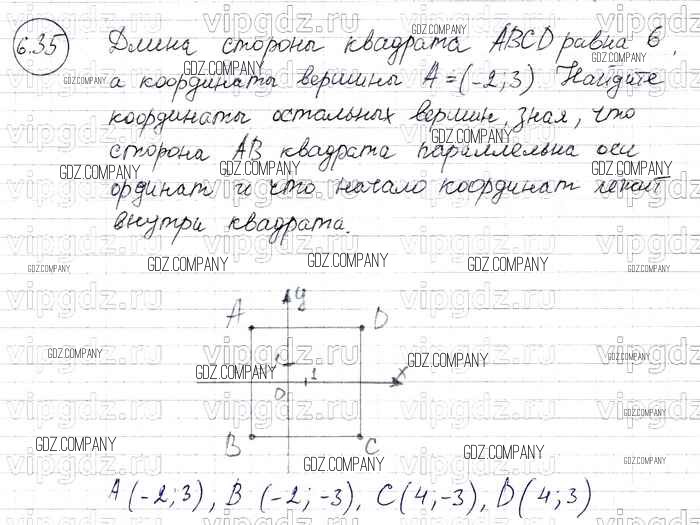 6.35 Длина стороны квадрата ABCD равна 6,
а координаты вершины A=(-2;3) Найдите
координаты остальных вершин, зная, что
сторона AB квадрата параллельна оси
ординат и что начало координат лежит
внутри квадрата.
y
A D
1
0 1 x
B C
A (-2;3), B (-2;-3), C(4;-3), D(4;3)
vipgdz.ru
GDZ.COMPANY